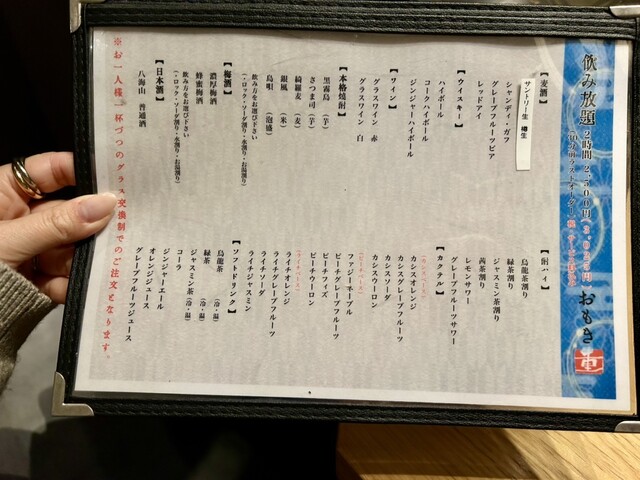 飲み放題 2時間 2,500円
おもき
重
【麦酒】
サントリー生 樽生
シャンディ・ガフ
グレープフルーツビア
レッドアイ
【ウイスキー】
ハイボール
コークハイボール
ジンジャーハイボール
【ワイン】
グラスワイン 赤
グラスワイン 白
【本格焼酎】
黒霧島 (芋)
さつま司 (芋)
綺羅麦 (麦)
銀風 (米)
島唄 (泡盛)
飲み方をお選び下さい
(・ロック・ソーダ割り・水割り・お湯割り)
【梅酒】
濃厚梅酒
蜂蜜梅酒
飲み方をお選び下さい
(・ロック・ソーダ割り・水割り・お湯割り)
【日本酒】
八海山 普通酒
【酎ハイ】
烏龍茶割り
緑茶割り
ジャスミン茶割り
蕎茶割り
レモンサワー
グレープフルーツサワー
【カクテル】
(カシスベース)
カシスオレンジ
カシスグレープフルーツ
カシスソーダ
カシスウーロン
(ピーチベース)
ファジーネーブル
ピーチグレープフルーツ
ピーチフィズ
ピーチウーロン
(ライチベース)
ライチオレンジ
ライチグレープフルーツ
ライチソーダ
ライチジャスミン
【ソフトドリンク】
烏龍茶 (冷・温)
緑茶 (冷・温)
ジャスミン茶 (冷・温)
コーラ
ジンジャーエール
オレンジジュース
グレープフルーツジュース
※お一人様一杯づつのグラス交換制でのご注文となります。